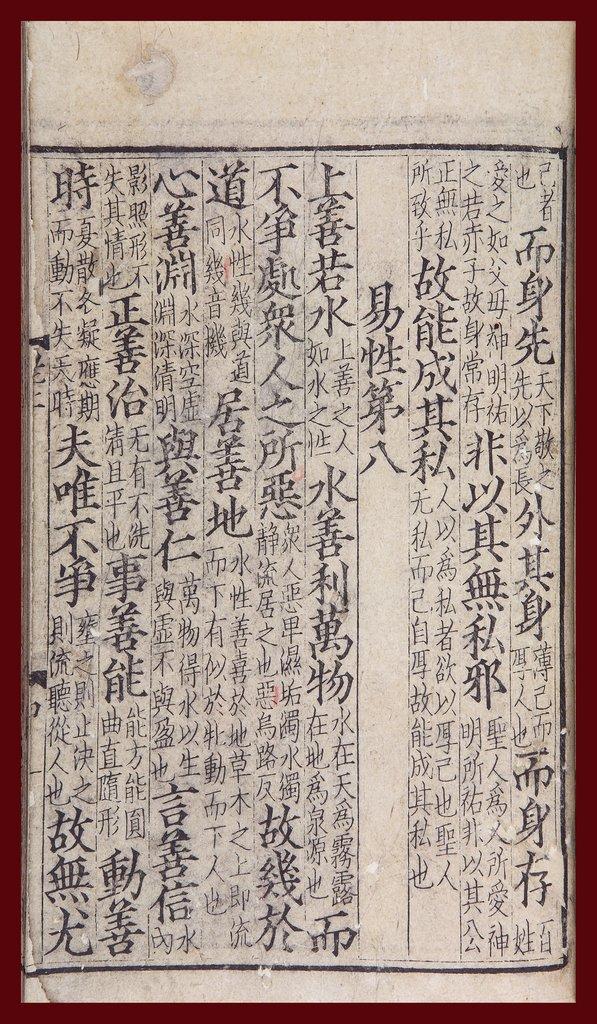 己者也而身先天下敬之先以為長外其身薄己而厚人也而身存百姓
愛之如父母神明祐之若赤子故身常存非以其無私邪聖人為人所愛神明所祐非以其公
正無私所致乎故能成其私人以為私者欲以厚己也聖人无私而己自厚故能成其私也
易性第八
上善若水上善之人如水之性水善利萬物水在天為霧露在地為泉源也而
不爭處衆人之所惡衆人惡卑濕垢濁水獨静流居之也惡烏路反故幾於
道水性幾與道同幾音機居善地水性善喜於地草木之上即流而下有似於牝動而下人也
心善淵水深空虛淵深清明與善仁萬物得水以生與虛不與盈也言善信水內
影照形不失其情也正善治无有不洗清且平也事善能能方能圓曲直隨形動善
時夏散冬凝應期而動不失天時夫唯不爭壅之則止決之則流聽從人也故無尤